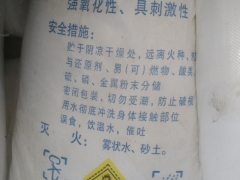 强氧化性、具刺激性
安全措施:
贮于阴凉干燥处,远离火种,
与还原剂、易(可)燃物、酸类
硫、磷、金属粉末分储
密闭包装,切勿受潮,防止破损
用水彻底冲洗身体接触部位
误食,饮温水,催吐
灭 火:雾状水、砂土。